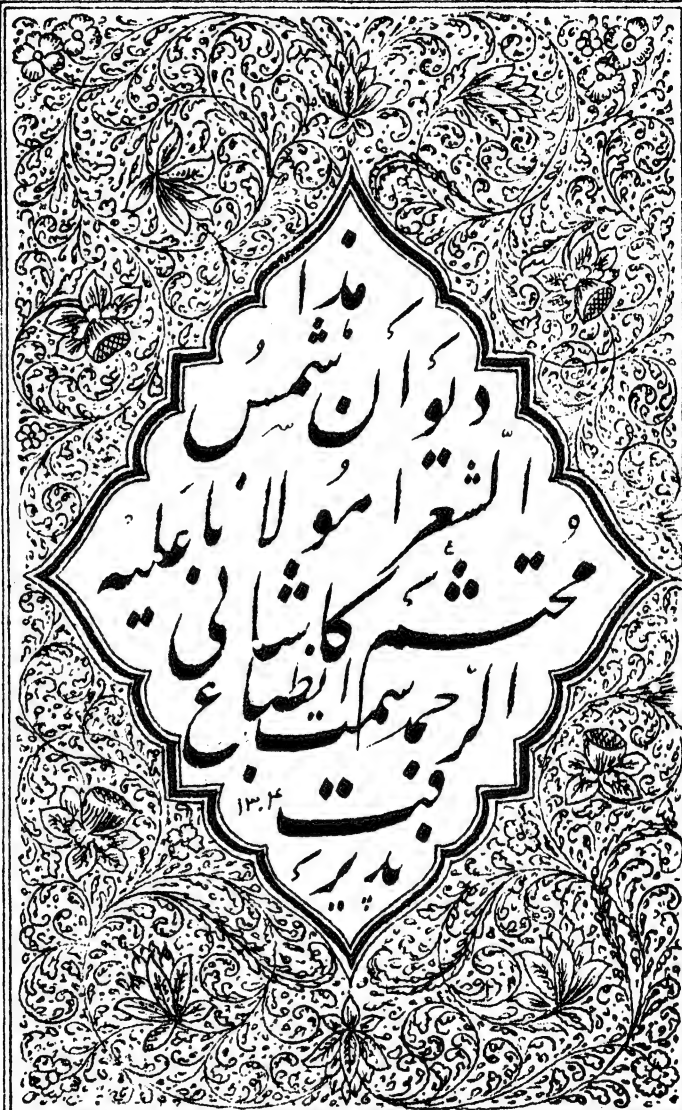 هذا
دیوان شمس
الشعرا مولانا
محتشم کاشانی علیه
الرحمه سمت انطباع
پذیرفت ۱۳۰۴